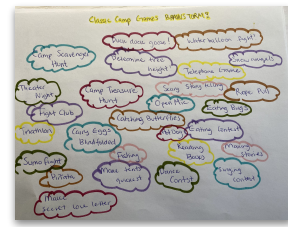 Classic Camp Games BRAINSTORM!
Duck duck goose!
Water balloon fight
Camp Scavenger
Hunt
Determine tree
height
Snow angels
Telephone Game
Theater
Night
Camp Treasure
Hunt
Scary story telling
Rope Pull
Open Mic
Eating Bugs
Fight Club
Catching Butterflies
Triathlon
Carry Eggs
Blindfolded
Hot Dog
Eating Contest
Reading
Books
Making
Stories
Sumo Fight
Fishing
Piñata
Make tents
quickest
Dance
Contest
Singing
contest
Make
secret love letter